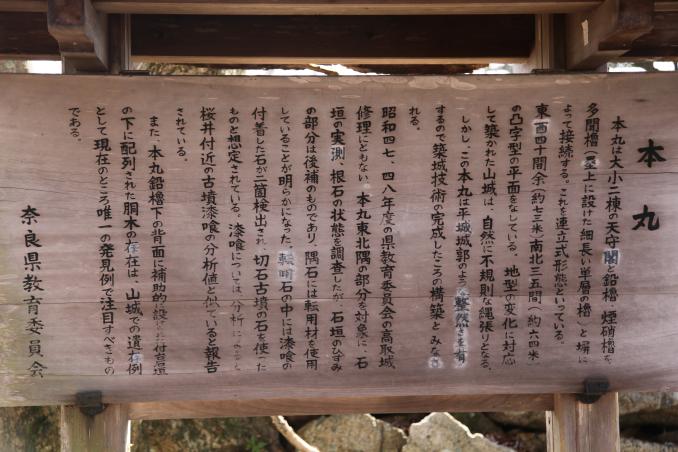 本丸
本丸は大小二棟の天守閣と鉛櫓、煙硝櫓を
多聞櫓(塁上に設けた細長い単層の櫓)と塀に
よって接続する。これを連立式形態といっている。
東西四十間余(約七三米)南北三五間(約六四米)
の凸字型の平面をなしている。地型の変化に対応
して築かれた山城は、自然に不規則な縄張りとなる。
しかし、この本丸は平城城郭のような整然さを有
するので築城技術の完成したころの構築とみなさ
れる。
昭和四七、四八年度の県教育委員会の高取城
修理にともない、本丸東北隅の部分を対象に、石
垣の実測、根石の状態を調査したが、石垣のひずみ
の部分は後補のものであり、隅石には転用材を使用
していることが明らかになった。転用石の中には漆喰の
付着した石が二箇検出され、切石古墳の石を使った
ものと想定されている。漆喰については分析
桜井付近の古墳漆喰の分析値と似ていると報告
されている。
また、本丸鉛櫓下の背面に補助的に設けた付岩垣
の下に配列された胴木の存在は、山城での遺存例
として現在のところ唯一の発見例で注目すべきもの
である。
奈良県教育委員会